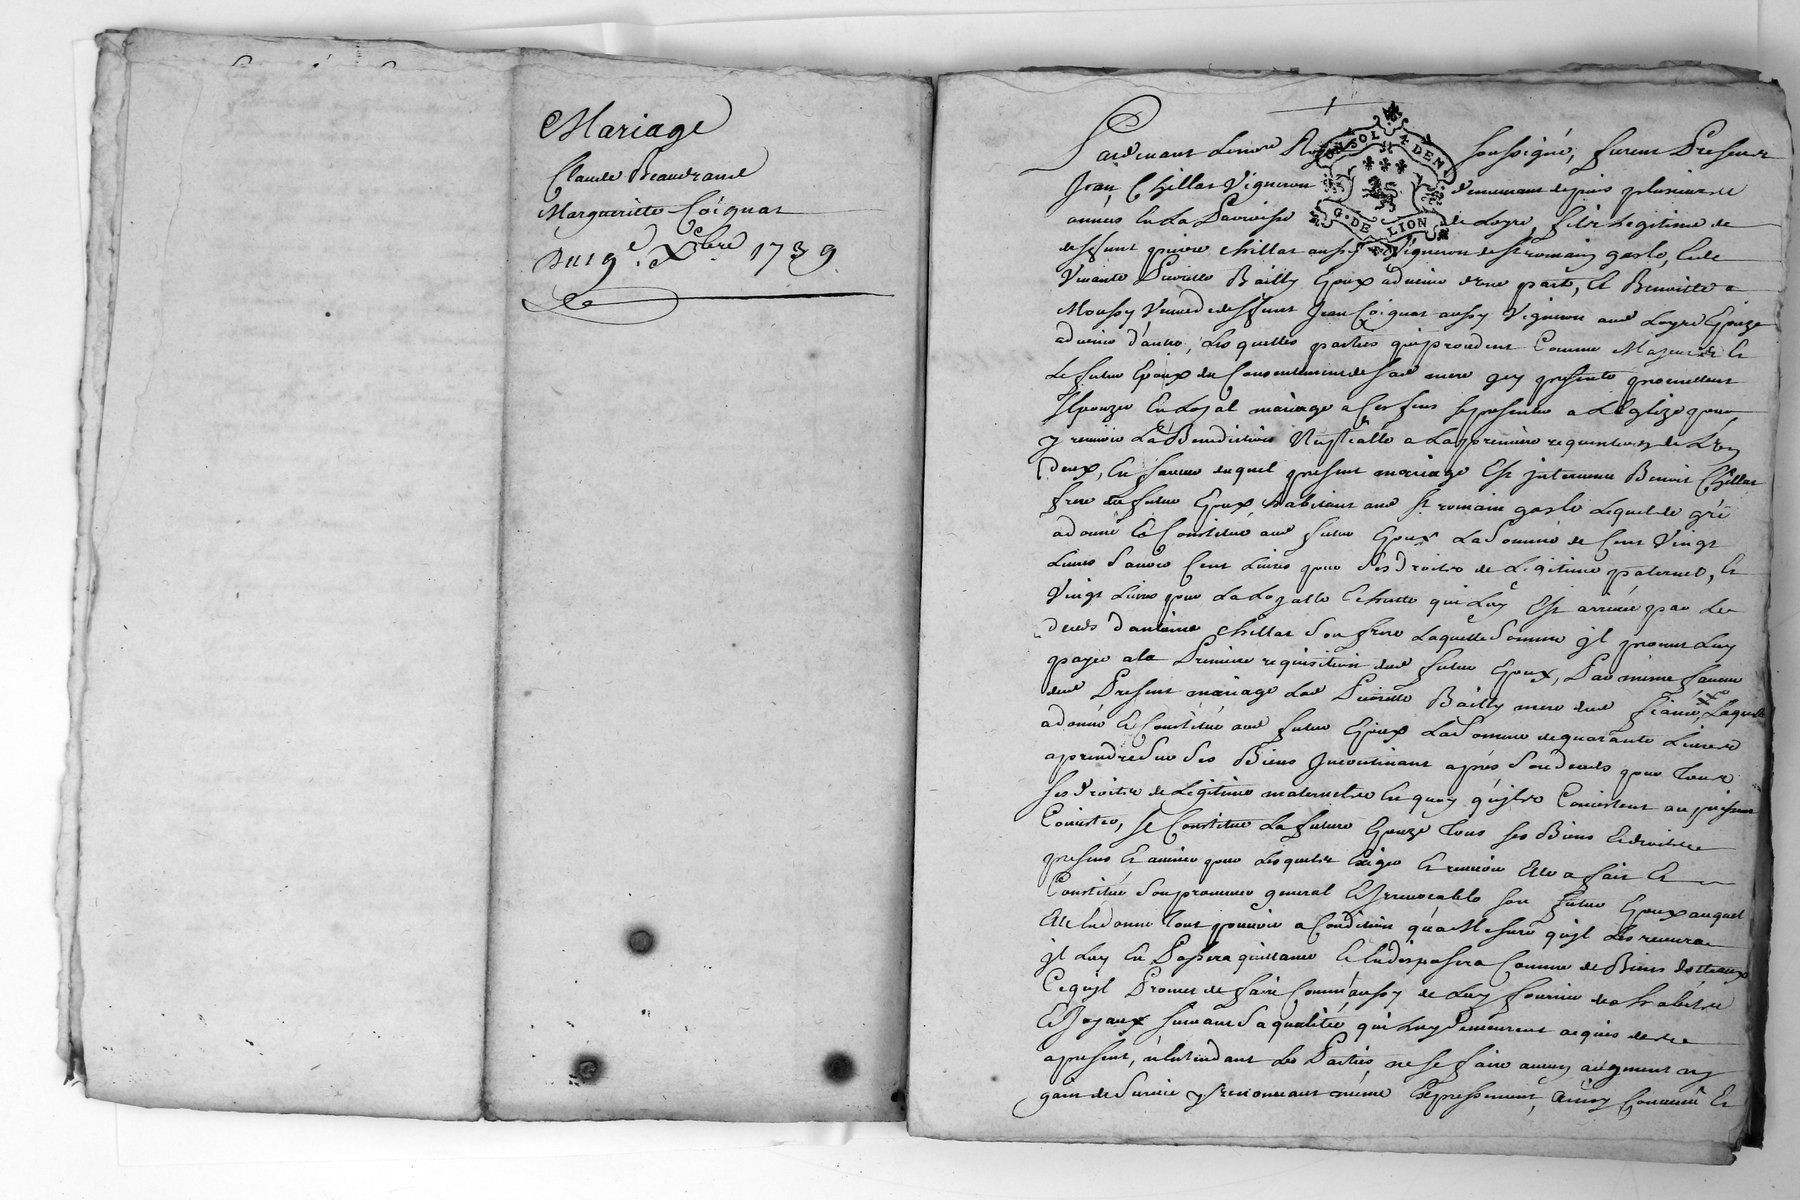 Mariage
Claude Beaudrand
Margueritte Coignat
Du 19e. Xbre 1739
UN SOL 4 DEN
G. DE LION
Pardevant Lenore Ro soussigné, furent Presents
Jean Chillat Vigneron demeurant depuis plusieurs
années en La Parroisse de Loyre, fils Legitime de
deffunt pierre chillat aussy Vigneron de st romain, Et de
Vivante Pierrette Bailly Epoux advenir d'une part, Et Benoitte
Moussy Veuve de deffunt Jean Coignat aussy Vigneron aud Loyre Epouze
advenir d'autre, Lesquelles parties procedent Comme Majeures Et
Le futur Epoux du Consentement de sad mere presente promettent
s'Epouzer En Loyal mariage a Ces fins se presenter a L'Eglize pour
y recevoir La Benediction Nuptialle a La premiere requisition de L'un
Deux, En faveur duquel present mariage Est intervenu Benoit Chillat
frere du futur Epoux habitant aud st romain Lequel de gré
a donné Et Constitué aud futur Epoux La Somme de Cent Vingt
Livres Sçavoir Cent Livres pour Ses Droits de Legitime paternel, Et
Vingt Livres pour La Loyalle Echutte qui Luy Est arrivée par Le
deceds d'antoine chillat Son frere Laquelle Somme jl promet Luy
payer a la Premiere requisition dud futur Epoux, Par meme faveur
dud Present mariage Lad Pierrette Bailly mere dud fiancé, Laquelle
a donné Et Constitué aud futur Epoux La Somme de quarante Livres
a prendre Sur Ses Biens Jncontinant aprés Son deceds pour Tous
Ses Droits de Legitime maternelle En quoy qu'jls Consistent ou puissent
Consister, Se Constitue La future Epouze Tous Ses Biens Et droits
presents Et avenir pour Lesquels Exiger Et recevoir Elle a fait Et
Constitué Son procureur general Et Jrrevocable Son futur Epoux auquel
Elle En donne Tout pouvoir a Condition qu'a Mesure qu'jl Les recevra
jl Luy En Passera quittance Et En disposera Comme de Biens dotteaux
Ce qu'jl Promet de faire Comm'aussy de Luy fournir des habits
Et Joyaux Suivant Sa qualité, qui Luy Demeurent acquis des
a present, n'Entendant Les Parties ne se faire aucun augment ny
gain de Survie y renonceant méme Expressement, Ainsy Convenu Et